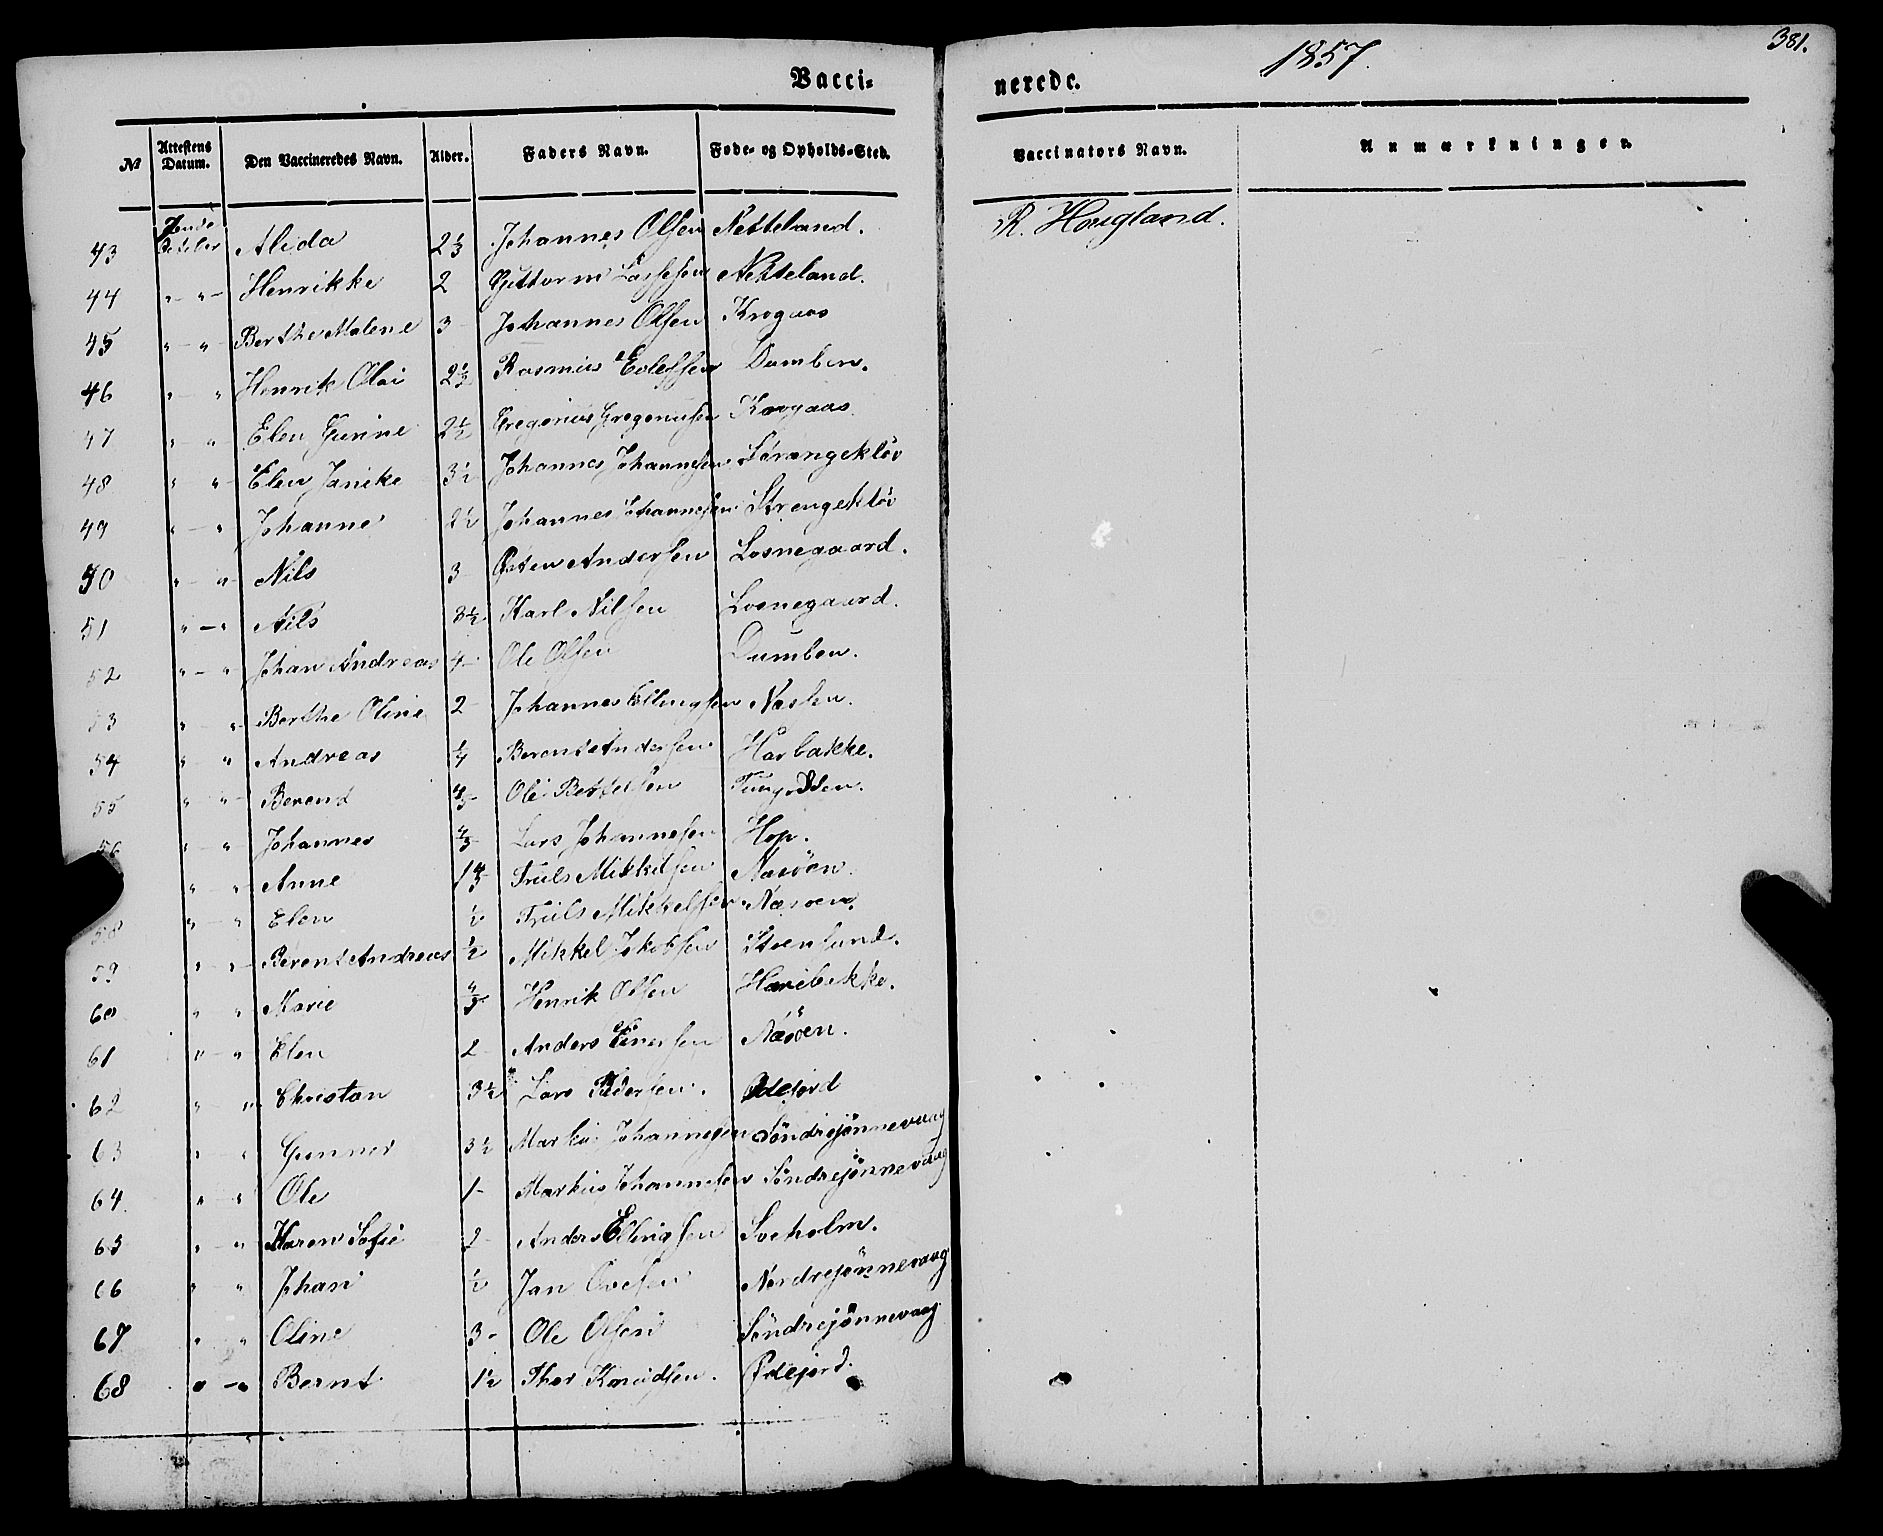 Vacci=
nerede.
1857.
381.
№ Attestens Datum. Den Vaccineredes Navn. Alder. Faders Navn. Føde- og Opholds-Sted. Vaccinators Navn. Anmærkninger.
43 Alida 2 1/3 Johannes Olsen Netteland. R. Hougland.
44 " - " - Henrikke 2 Guttorm Lassesen Netteland.
45 " " Berthe Malene 3 Johannes Olsen Krogaas
46 " " Henrik Olai 2 1/2 Rasmus Dumben.
47 " " Elen Gurine 2 1/2 Gregorius Gregoriusen Krogaas
48 " " - Elen Janike 3 1/2 Johannes Johannesen
49 " - " Johanne 2 1/2 Johannes Johannesen
50 " - " - Nils 3 Østen Andersen Losnegaard.
51 " - " Nils 3 1/2 Karl Nilsen Losnegaard.
52 " - " Johan Andreas 4 - Ole Olsen Dumben.
53 " - " - Berthe Oline 2 - Johannes Ellingsen
54 " " Andreas 1/4 Berent Andersen Harbakke.
55 " " - Berend 4/5 Ole Bertelsen
56 " - " Johannes 4/5 Lars Johannesen Hop.
" - " - Anne 1 4/5 Truls Mikkelsen Næsøen.
58 " - " Elen 1/2 Truls Mikkelsen Næsøen.
59 " - " - Berent Andreas 1/2 Mikkel Jakobsen Steensund.
60 " " Marie 4/5 Henrik Olsen
61 " - " Elen 2 - Anders Næsøen.
62 " " Christan 3 1/2 Lars Pedersen. Ødejord
63 " " Gunner 3 1/2 Markus Johannesen Søndrejønnevaag
64. " " Ole 1 - Markus Johannesen Søndrejønnevaag
65 " " Karen Sofie 2 - Anders Ellingsen
66 " " Johan 1/2 Jan Ovesen Nordrejønnevaag
67 " " Oline 3 - Ole Olsen Søndrejønnevaag
68 " - " Bernt 1 1/2 Thor Knudsen. Ødejord.